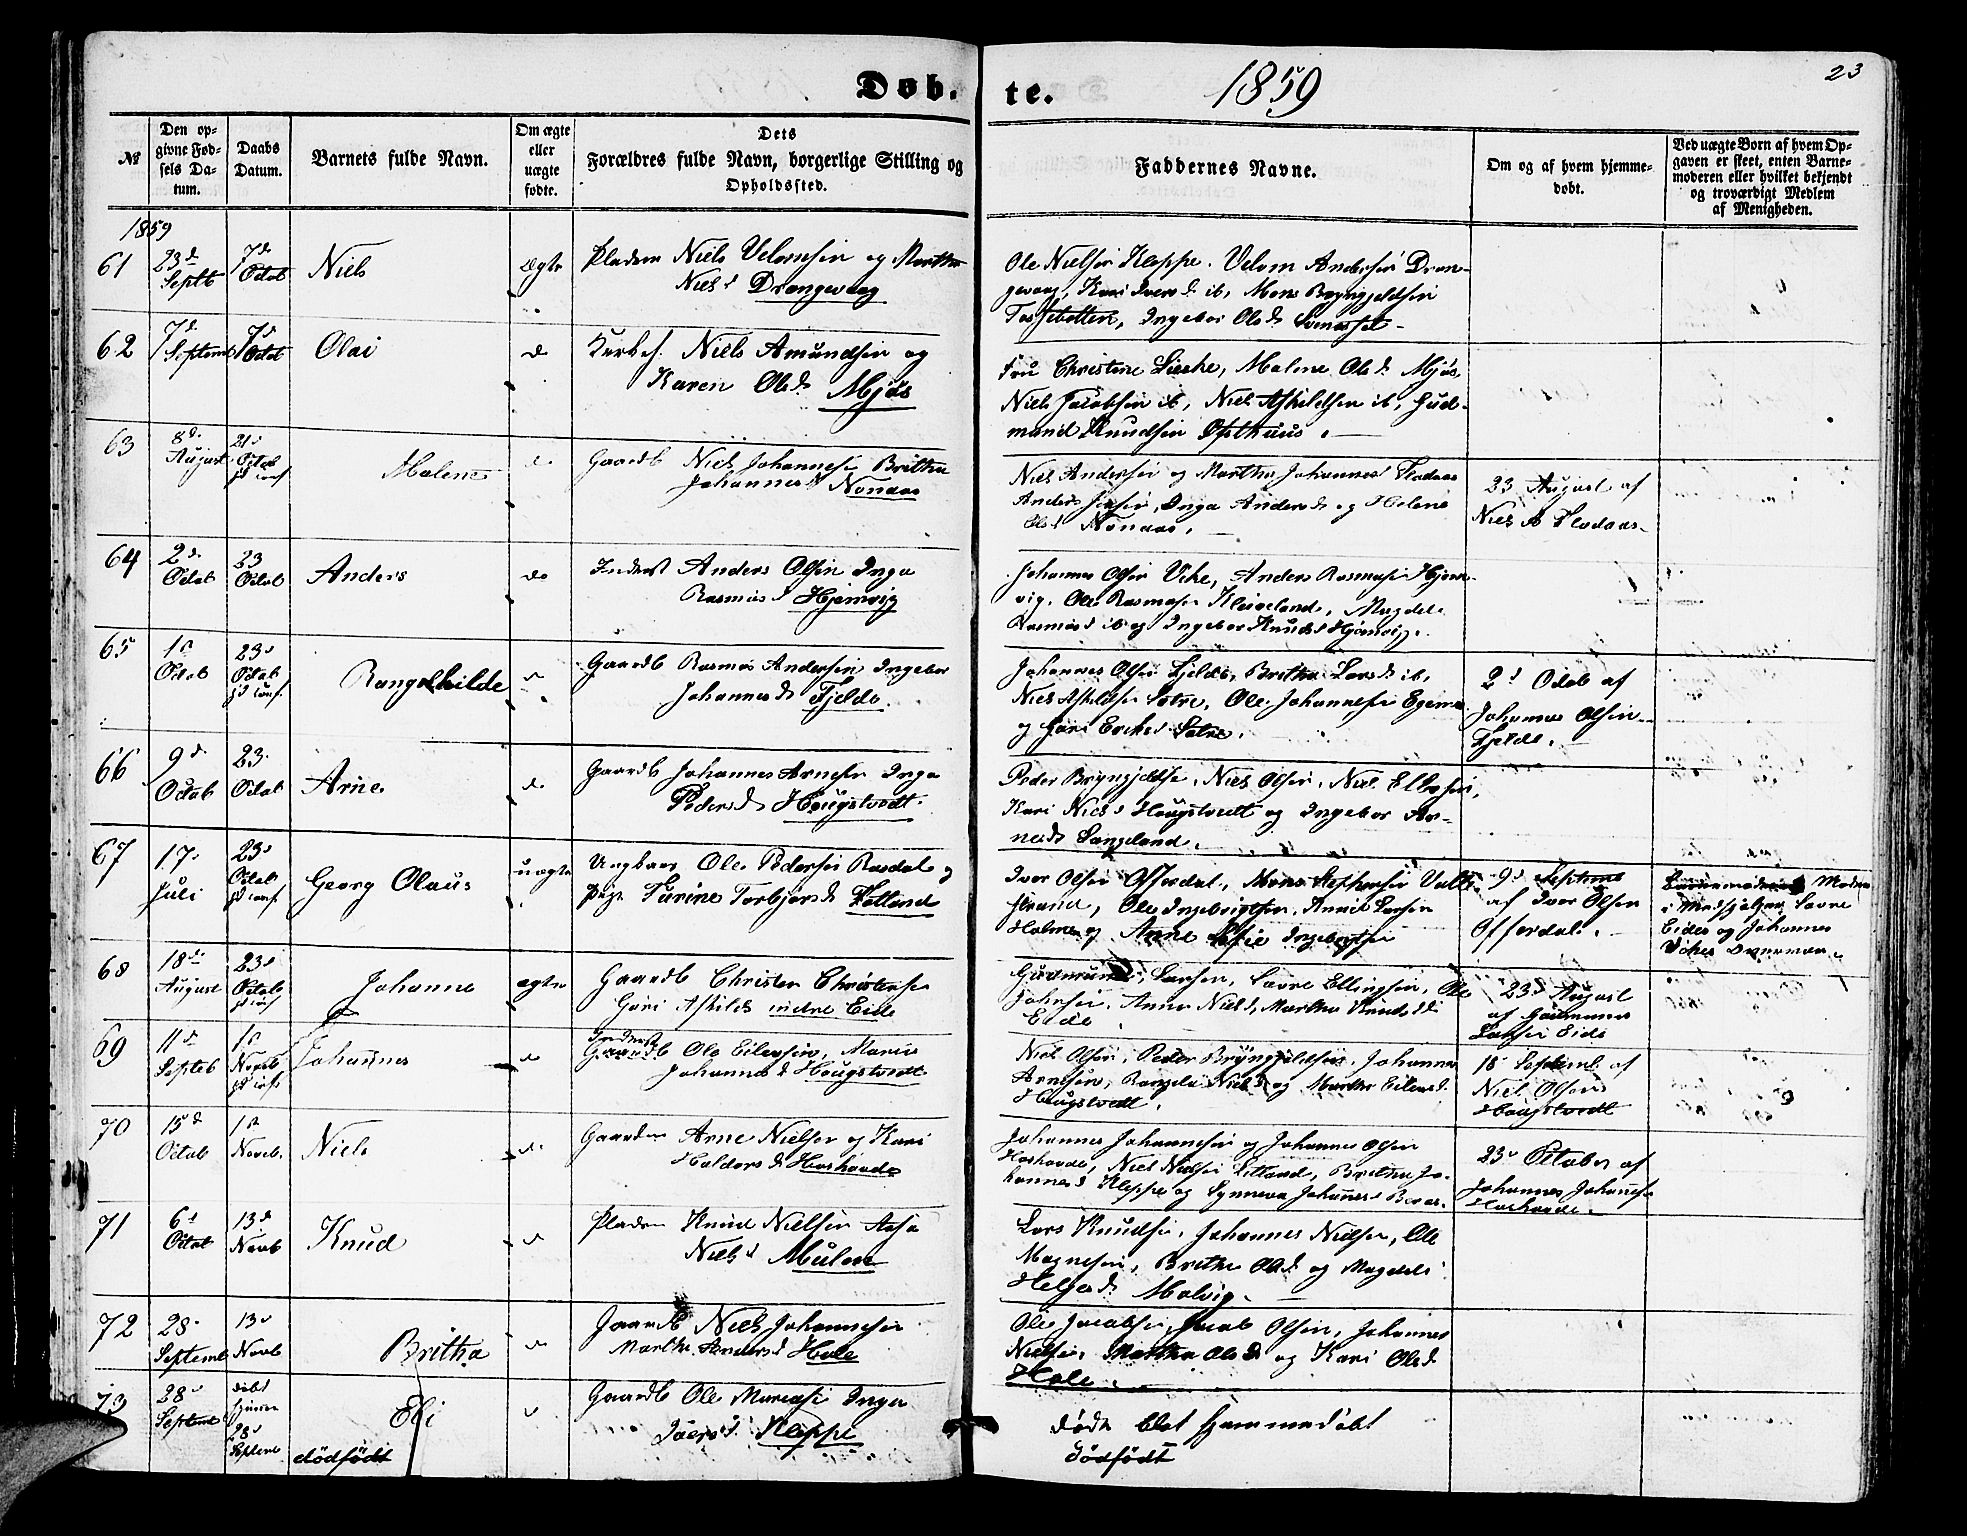 Døb-
te.
1859
23
№
Den op-
givne Fød-
sels Da-
tum.
Daabs
Datum.
Barnets fulde Navn.
Om ægte
eller
uægte
fødte.
Dets
Forældres fulde Navn, borgerlige Stilling og
Opholdssted.
Faddernes Navne.
Om og af hvem hjemme-
døbt.
Ved uægte Børn af hvem Op-
gaven er skeet, enten Barne-
moderen eller hvilket bekjendt
og troværdigt Medlem
af Menigheden.
1859
61
23d
Septb
7d
Octob
Niels
Ægte
Pladsm Niels Velomsen og Martha
Niels d Drangevaag
Ole Nielsen Kleppe. Velom Andersen Dran-
gevaag, Kari Ivers d ib, Mons Bryngjeldsen
Tossebotten, Ingebor Ols d
62
7d
Septemb
7d
Octob
Olai
do
Niels Amundsen og
Karen Ols d Mjøs
Fru Christine Lierke, Malene Ols d Mjøs
Niels Jacobsen ib, Niels Askildsen ib, Gud-
mund Knudsen Østhuus.
63
8d
August
21d
Octob
Malene
do
Gaardb Niels Johannesen Britha
Johannes d Nonaas
Niels Andersen og Martha Johannes d Flodaas
Anders Inga Anders d og Helene
Ols d Nonaas.
23 August af
Niels A Flodaas
64
2d
Octob
23
Octob
Anders
do
Inderst Anders Olsen Inga
Rasmus d Hjemvig
Johannes Olsen Vike, Anders Rasmusen Hjem-
vig, Ole Rasmusen Kleiveland, Magdele
Rasmus d ib og Ingebor Knuds d Hjemvig.
65
1d
Octob
23d
Octob
Rangelhilde
Gaardb Rasmus Andersen Ingebor
Johannes d Fjelde.
Johannes Olsen Fjelde, Britha Lars d ib,
Niels Askildsen Sætre, Ole Johannesen
og Sætre.
2d Octob af
Johannes Olsen
Fjelde.
66
9d
Octob
23.
Octob
Arne
do
Gaardb Johannes Arnesen Inga
Peders d Hougstvedt.
Peder Bryngjeldsen, Niels Olsen, Niels Ellingsen,
Kari Niels d Hougstvedt og Ingebor Ar-
nesd Langeland.
67
17.
Juli
23d
Octob
Georg Olaus
uægte
Ungkarl Ole Pedersen Rosdal og
Pige Turine Torbjørs d Hetland
Iver Olsen Offerdal, Mons
strand, Ole Ingebrigtsen, Knut Larsen
Holme og Anne Sofie Ingebrigtsen
9d Septemb
af Iver Olsen
Offerdal.
Moder
Eide og Johannes
68
18d
August
23d
Octob
Johanne
ægte
Gaardb Christen Christensen
Guri Askilds indre Eide
Gudmund Larsen, Lavre Ellingsen, Ole
Johnsen, Anna Niels d, Martha Knuds d
Eide.
23d August
af Gudmund
Larsen Eide
69
11d
Septeb
1d
Noveb
Johannes
do
Inderst
Gaardb Ole Eilersen, Marie
Johannes d Hougstvedt
Niels Olsen, Peder Bryngjeldsen, Johannes
Arnesen, Rangela Niels d og Martha Eilers d
Hougstvedt.
18 Septemb af
Niels Olsen
Hougstvedt
70
15d
Octob
1d
Noveb.
Niels
do
Gaardm Arne Nielsen og Kari
Haldors d Hashovde
Johannes Johannesen og Johannes Olsen
Hashovde, Niels Nielsen Litland, Britha Jo-
hannes d Kleppe og Synneva Johannes d
23d October af
Johannes Johannesen
Hashovde.
71
6d
Octob
13d
Novb
Knud
Pladsm Knud Nielsen Aasa
Niels d Mulen
Lars Knudsen, Johannes Nielsen, Ole
Magnesen, Britha Ols d og Magdele
Helges d Malvig.
72
28.
Septemb
13d
Novb
Britha
Gaardb Niels Johannesen
Martha Anders d Hole
Ole Jacobsen, Jacob Olsen, Johannes
Nielsen, Martha Ols d og Kari Ols d
Hole.
73
28d
Septemb
døbt
hjemme
28d
Septemb
Eli
dödfödt
Gaardb Ole Inga
Ivers d Kleppe
døde blot hjemmedøbt
dödfödt